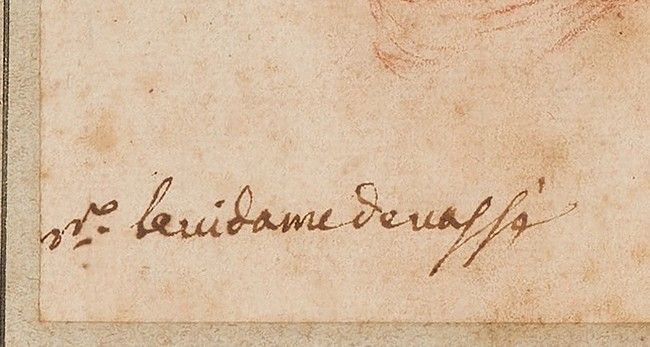 Mr. le vidame de vassé